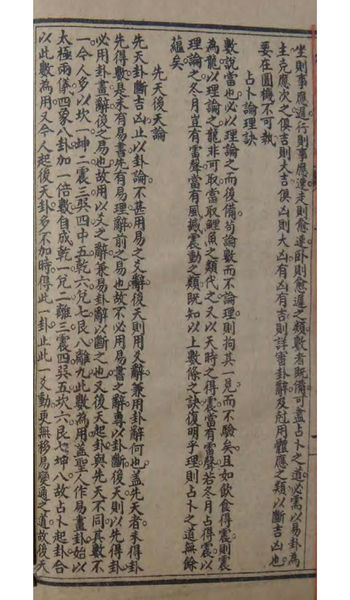 坐則事應遲行則事應速走則愈速臥則愈遲之類數者既備可盡占卜之道必需以易卦為
主克應次之俱吉則大吉俱凶則大凶有凶有吉則詳審卦辭及尅用體應之類以斷吉凶也
要在圓機不可執
占卜論理訣
數說當也必以理論之而後備苟論數而不論理則拘其一見而不驗矣且如飲食得震則震
為龍以理論之龍非可取當取鯉魚之類代之又以天時之得震當有雷聲若冬月占得震以
理論之冬月豈有雷聲當有風撼震動之類既知以上數條之訣復明乎理則占卜之道無餘
蘊矣
先天後天論
先天卦斷吉凶止以卦論不甚用易之爻辭後天則用爻辭兼用卦辭何也蓋先天者未得卦
先得數是未有易書先有易理辭前之易也故不必用易書之辭專以卦斷後天則以先得卦
必用卦畫辭後之易也故用以爻之辭兼易卦辭以斷之也又後天起卦與先天不同其數不
一今人多以坎一坤二震三巽四中五乾六兌七艮八離九此數為用蓋聖人作易畫卦始以
太極兩儀四象八卦加一倍數自成乾一兌二離三震四巽五坎六艮七坤八故占卜起卦合
以此數為用又今人起後天卦多不加時得此一卦止此一爻動更無移易變通之道故後天